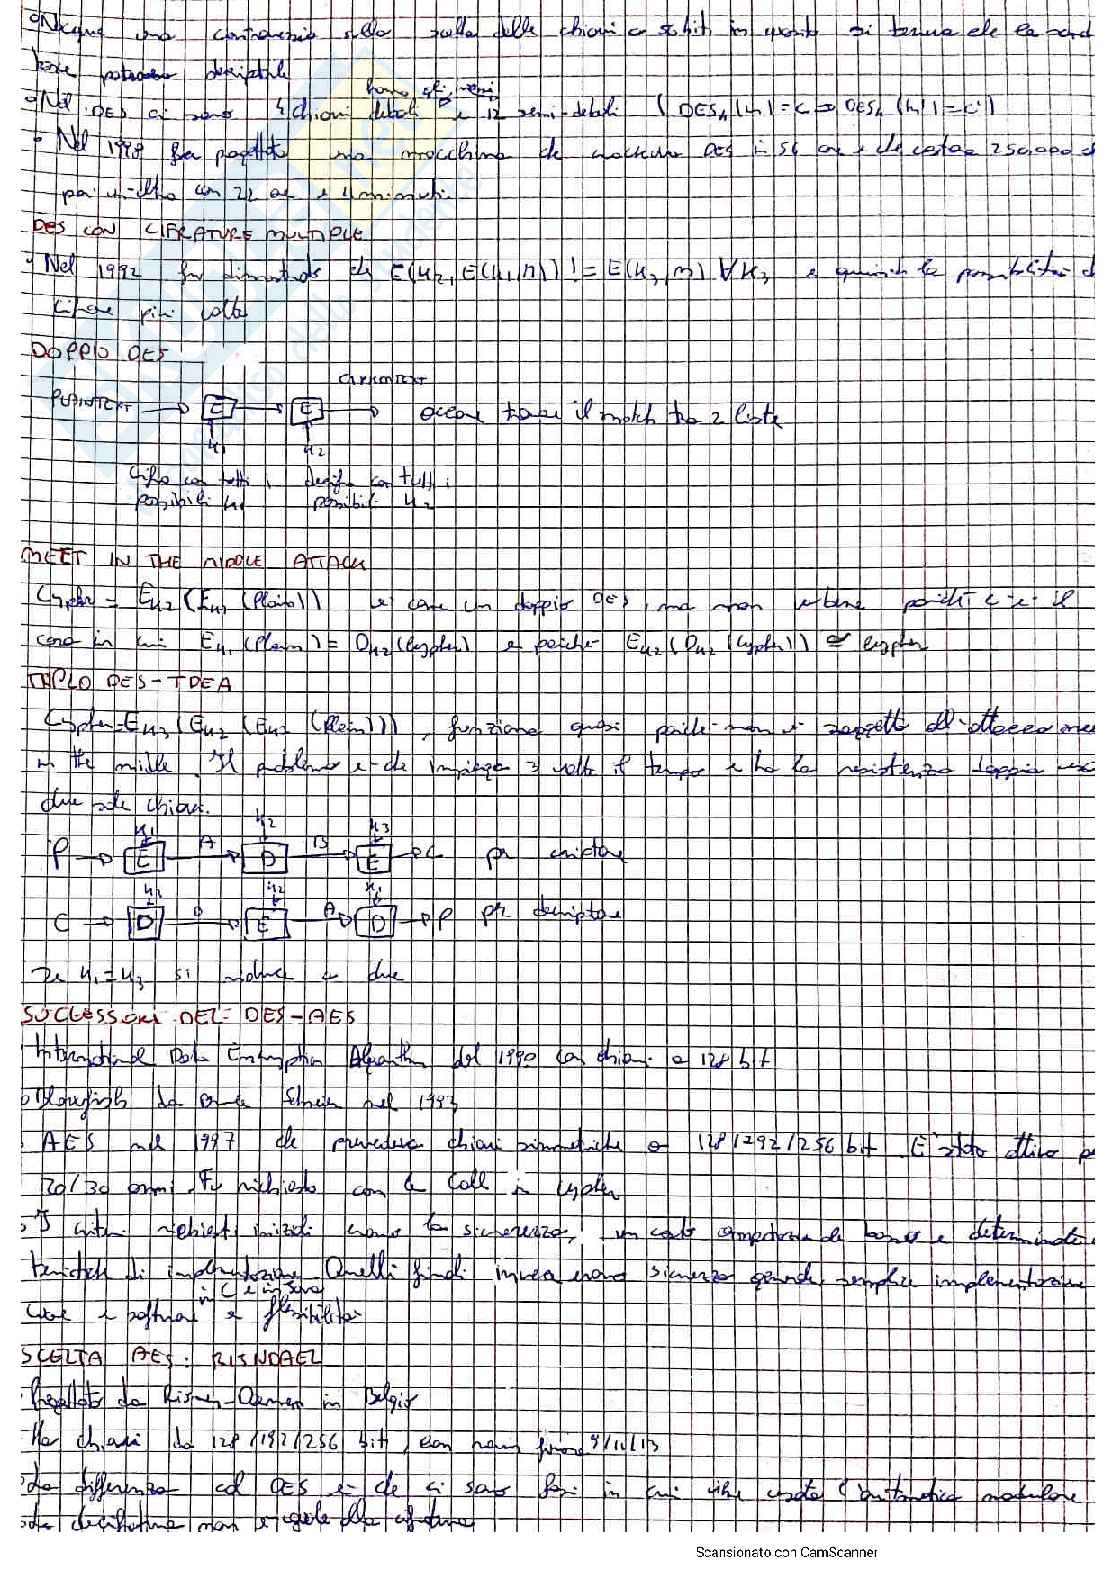 Nacque una controversia sulla scelta delle chiavi a 56 bit in quanto si temeva che la
potesse decriptarle
hanno gli
Nel DES ci sono 4 chiavi deboli e 12 semi-deboli (DESk(m)=c => DESk(m')=c')
Nel 1998 fu progettata una macchina che craccava DES in 56 ore e che costava 250.000
poi un'altra con 22 ore e minuti
DES CON CIFRATURE MULTIPLE
Nel 1992 fu dimostrato che E(k2, E(k1, m)) != E(k3, m) ∀k3 e quindi la possibilità
cifrare più volte
DOPPIO DES
CYPHERTEXT
PLAINTEXT → E → E → occorre trovare il match tra 2 liste
k1 k2
cifro con tutti i decifro con tutti i
possibili k1 possibili k2
MEET IN THE MIDDLE ATTACK
Cypher = Ek2(Ek1(Plain)) è come un doppio DES, ma non va bene poiché c'è il
caso in cui Ek1(Plain) = Dk2(Cypher) e poiché Ek2(Dk2(Cypher)) = cypher
TRIPLO DES-TDEA
Cypher=Ek3(Ek2(Ek1(Plain))), funziona quasi poiché non è soggetto all'attacco
in the middle. Il problema è che impiega 3 volte il tempo e ha la resistenza doppia
due sole chiavi.
k1 k2 k3
P → E A D B E → C per criptare
k3 k2 k1
C → D B E A D → P per decriptare
Se k1=k3 si riduce a due
SUCCESSORI DEL DES-AES
International Data Encryption Algorithm del 1990 con chiavi a 128 bit
Blowfish da Bruce Schneier nel 1993
AES nel 1997 che prevedeva chiavi simmetriche a 128/192/256 bit. È stato attivo
20/30 anni. Fu richiesto con la Call in cypher
I criteri richiesti inizialI erano la sicurezza, un costo computazionale basso e determinate
tecniche di implementazione. Quelli finali invece erano sicurezza generale, semplice implementazione
in C e in Java
e software e flessibilità
SCELTA AES: RIJNDAEL
Progettato da Rijmen-Daemen in Belgio
Ha chiavi da 128/192/256 bit, con 9/11/13
La differenza col DES è che ci sono fasi in cui viene usata l'aritmetica modulare
La decifratura non è uguale alla cifratura
Scansionato con CamScanner